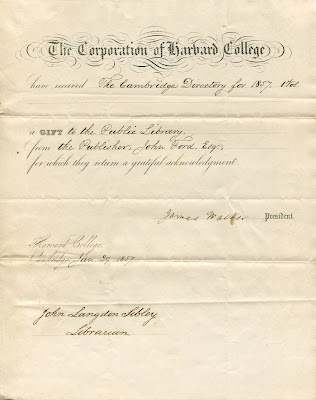 The Corporation of Harvard College
have received The Cambridge Directory for 1857. 1 Vol.
a GIFT to the Public Library,
from the Publisher, John Ford, Esq.
for which they return a grateful acknowledgment.
James Walker President.
Harvard College.
Camb. Jan 29 1857
John Langdon Sibley
Librarian